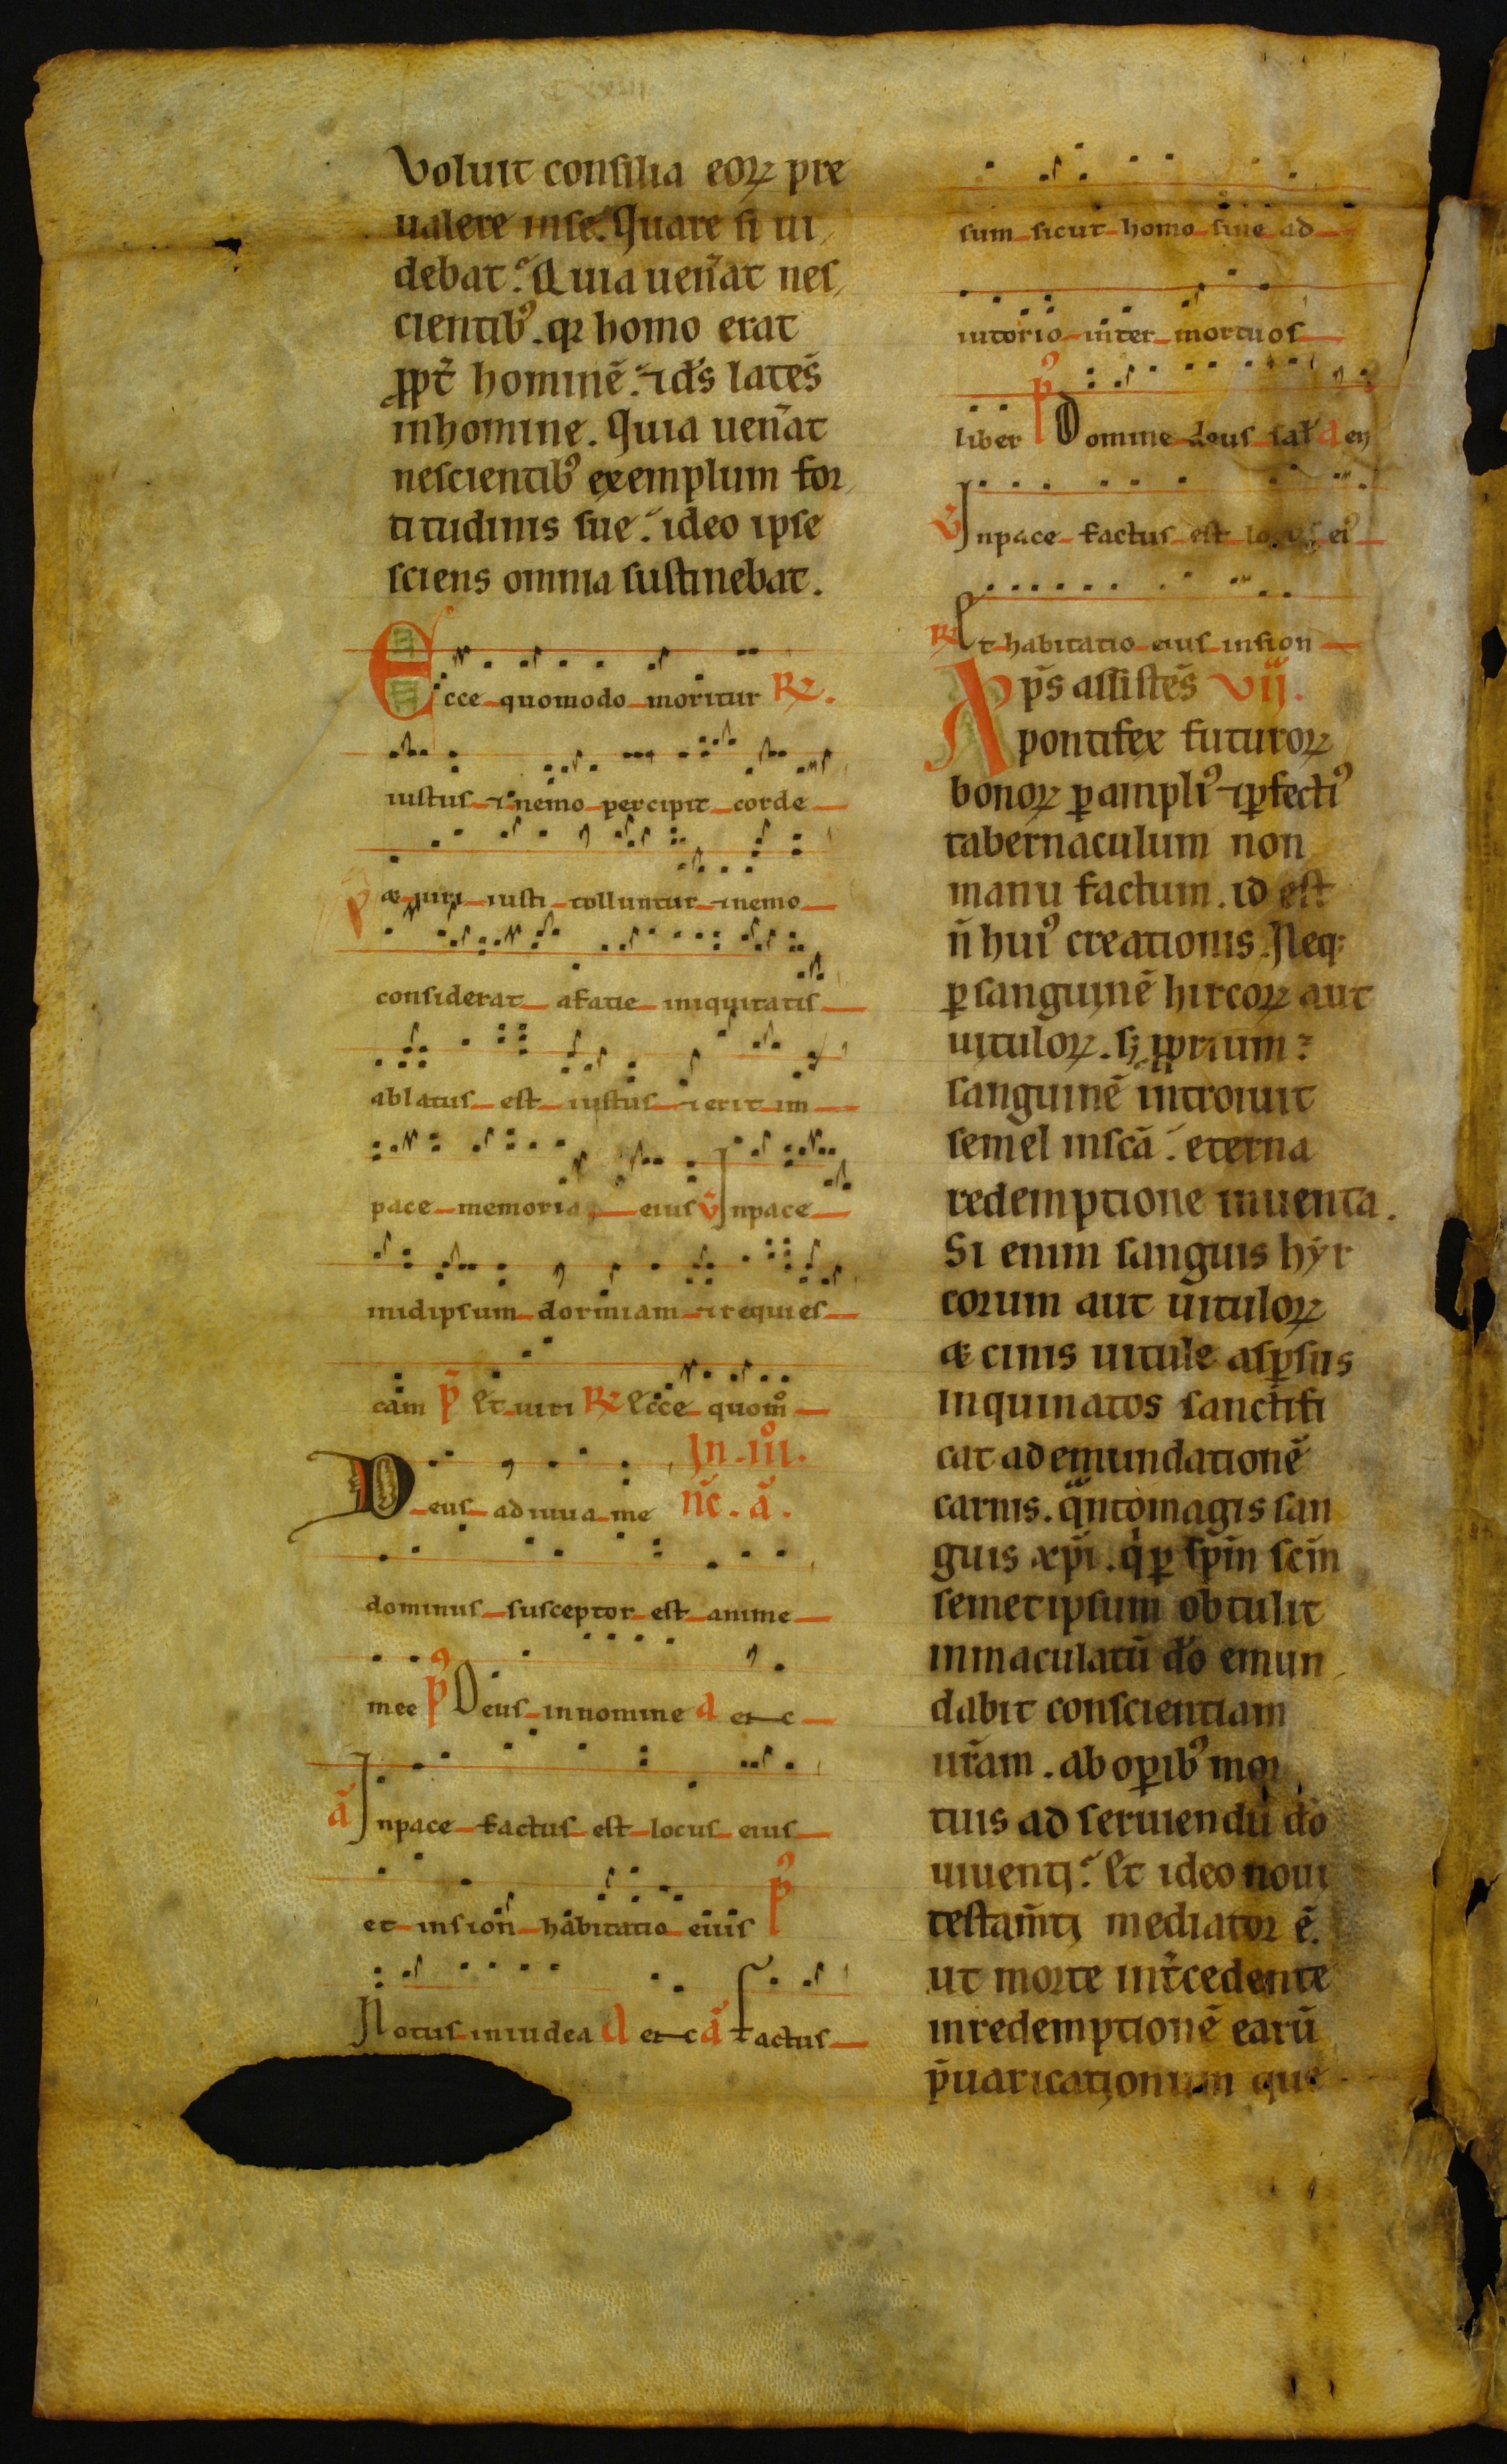 Voluit consilia eoꝝ pre
ualere inse. Quare si ui
debat? Quia uen̄at nes
cientib᷒. qꝛ homo erat
ꝓpt̄ hominē. ⁊ ds̄ lates̄
inhomine. Quia uen̄at
nescientib᷒ exemplum for
titudinis sue. ideo ipse
sciens omnia sustinebat.
Ecce quomodo moritur ℞.
iustus ⁊ nemo percipit corde
p̄ & uiri iusti tolluntur ⁊ nemo
considerat afatie iniquitatis
ablatus est iustus ⁊ erit in
pace memoria eius v̄ Inpace
inidipsum dormiam ⁊ requies
cam p̄ Et uiri ℞ Ecce quom̊
Deus adiuua me In .iiiͦ.
n̄c. ā.
dominus susceptor est anime
mee p᷒ Deus innomine d et c
ā Inpace factus est locus eius
et insion habitatio eius p᷒
Notus iniudea d et c ā factus
sum sicut homo sine ad
iutorio inter mortuos
liber p᷒ Domine deus sal d en
v̄ Inpace factus est locus ei᷒
℞ Et habitatio eius insion
Xp̄s assistes̄ vij.
pontifex futuroꝝ
bonoꝝ ꝑ ampli᷒ ⁊ ꝑfecti᷒
tabernaculum non
manu factum. id est
n̄ hui᷒ creationis. Neqꝫ
ꝑ sanguinē hircoꝝ aut
uituloꝝ. sꝫ ꝓprium
sanguinē introiuit
semel inscā. eterna
redemptione inuenta.
Si enim sanguis hyr
corum aut uituloꝝ
& cinis uitule asꝑsus
inquinatos sanctifi
cat ad emundationē
carnis. qͣnto magis san
guis xp̄i. qͥ ꝑ sp̄m sc̄m
semetipsum obtulit
inmaculatū do emun
dabit conscientiam
ur̄am. ab oꝑib᷒ mor
tuis ad seruiendū do
uiuenti? Et ideo noui
testam̄ti mediator ē.
ut morte int̄cedente
inredemptionē earū
p̄uaricationum que